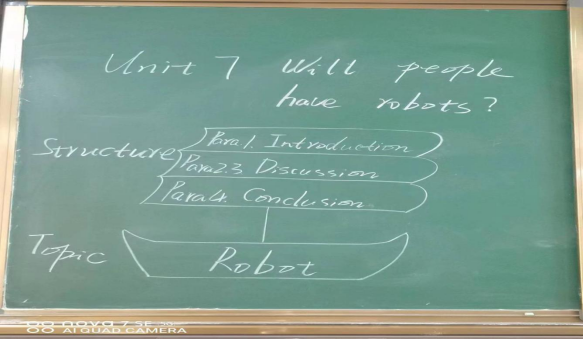 Unit 7 Will people
have robots?
Structure
Para1. Introduction
Para2.3 Discussion
Para4. Conclusion
Topic
Robot
AI QUAD CAMERA